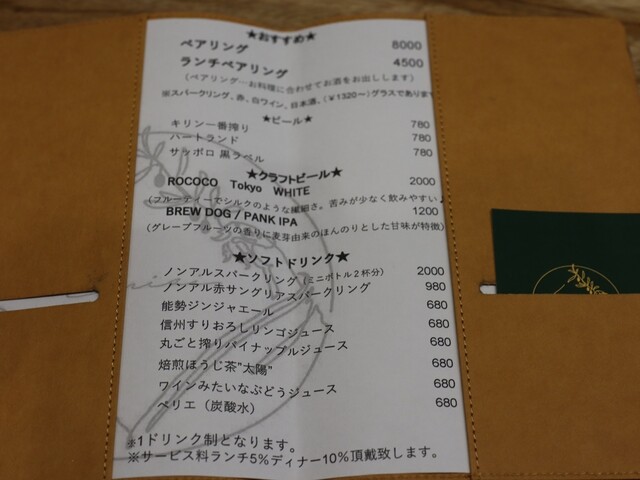 ★おすすめ★
ペアリング 8000
ランチペアリング 4500
(ペアリング…お料理に合わせてお酒をお出しします)
※スパークリング、赤、白ワイン、日本酒、(¥1320〜)グラスであります
★ビール★
キリン一番搾り 780
ハートランド 780
サッポロ 黒ラベル 780
★クラフトビール★
ROCOCO Tokyo WHITE 2000
(フルーティーでシルクのような繊細さ。苦みが少なく飲みやすい♪
BREW DOG / PANK IPA 1200
(グレープフルーツの香りに麦芽由来のほんのりとした甘味が特徴)
★ソフトドリンク★
ノンアルスパークリング (ミニボトル2杯分) 2000
ノンアル赤サングリアスパークリング 980
能勢ジンジャエール 680
信州すりおろしリンゴジュース 680
丸ごと搾りパイナップルジュース 680
焙煎ほうじ茶"太陽" 680
ワインみたいなぶどうジュース 680
ペリエ（炭酸水） 680
※1ドリンク制となります。
※サービス料ランチ5%ディナー10%頂戴致します。